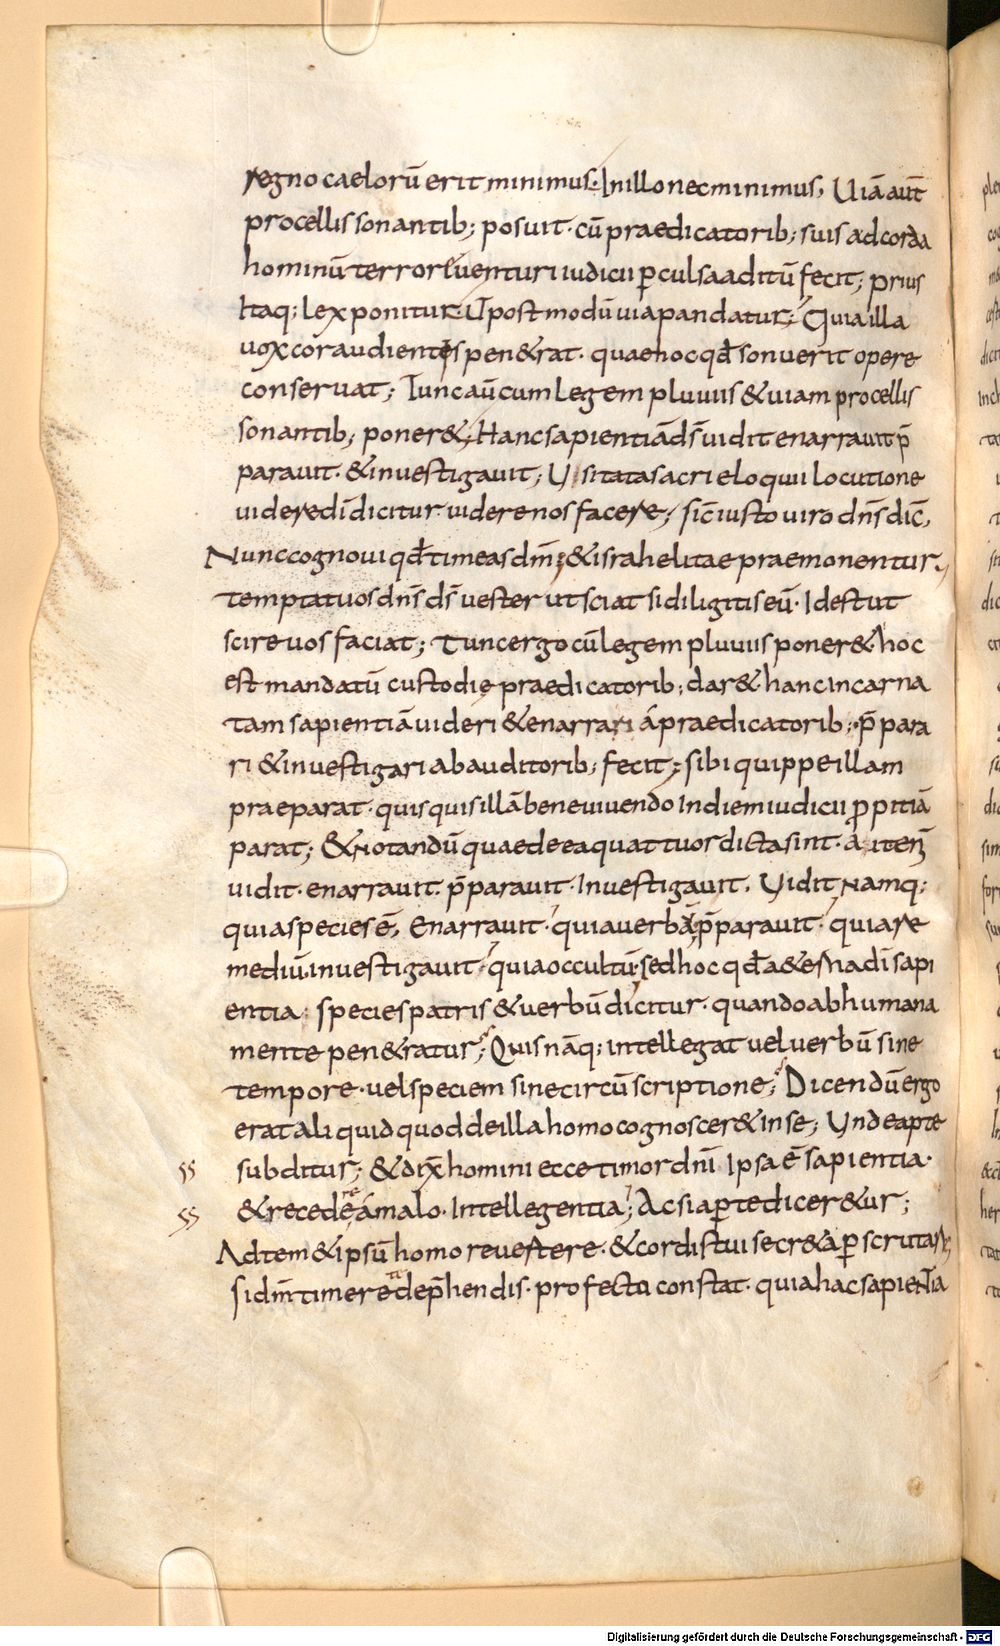 regno caelorū erit minimus. In illo nec minimus, Uiā aūt
procellis sonantib; posuit· cū praedicatorib; suis ad corda
hominū terrorē uenturi iudicii ꝑculsa aditū fecit; prius
Itaq; lex ponitur ut postmodū uia pandatur; Quia illa
uox cor audientis pen&rat· quae hoc qđ sonuerit opere
conseruat; Tunc aū cum legem pluuiis & uiam procellis
sonantib; poner&; Hanc sapientiā dš uidit enarrauit p̄
parauit· & inuestigauit; Usitata sacri eloquii locutione
uidere dī dicitur uidere nos facere; sic̄ iusto uiro dn̄s dic̄,
Nunc cognoui qđ timeas dm̄; & israhelitae praemonentur.
temptat uos dn̄s dš uester ut sciat si diligitis eū· Id est ut
scire uos faciat; Tunc ergo cū legem pluuiis poner& hoc
est mandatū custodie praedicatorib; dar& hanc incarna
tam sapientiā uideri & enarrari á praedicatorib; p̄para
ri & inuestigari ab auditorib; fecit; sibi quippe illam
praeparat· quisquis illā bene uiuendo In diem iudicii ꝓpitiā
parat; & Notandū quae de ea quattuor dicta sint· autem̄
uidit· enarrauit· p̄parauit· Inuestigauit. Uidit Namq;
quia species ē, Enarrauit· quia uerbū p̄parauit· quia re
mediū. inuestigauit· quia occultū; sed hoc qđ a&erna dī sapi
entia· species patris & uerbū dicitur· quando ab humana
mente pen&ratur; Quis nāq; intellegat uel uerbū sine
tempore· uel speciem sine circūscriptione; Dicendū ergo
erat aliquid quod de illa homo cognoscer& in se; Unde apte
ss subditur; & dix̄ homini ecce timor dn̄i Ipsa ē sapientia·
ss & recedere á malo· Intellegentia; Ac si aꝑte dicer&ur;
Ad tem&ipsū homo reuertere· & cordis tui secr&a ꝑscrutare;
si dm̄ timere te dep̄hendis· profecto constat· quia hac sapientia
Digitalisierung gefördert durch die Deutsche Forschungsgemeinschaft - DFG